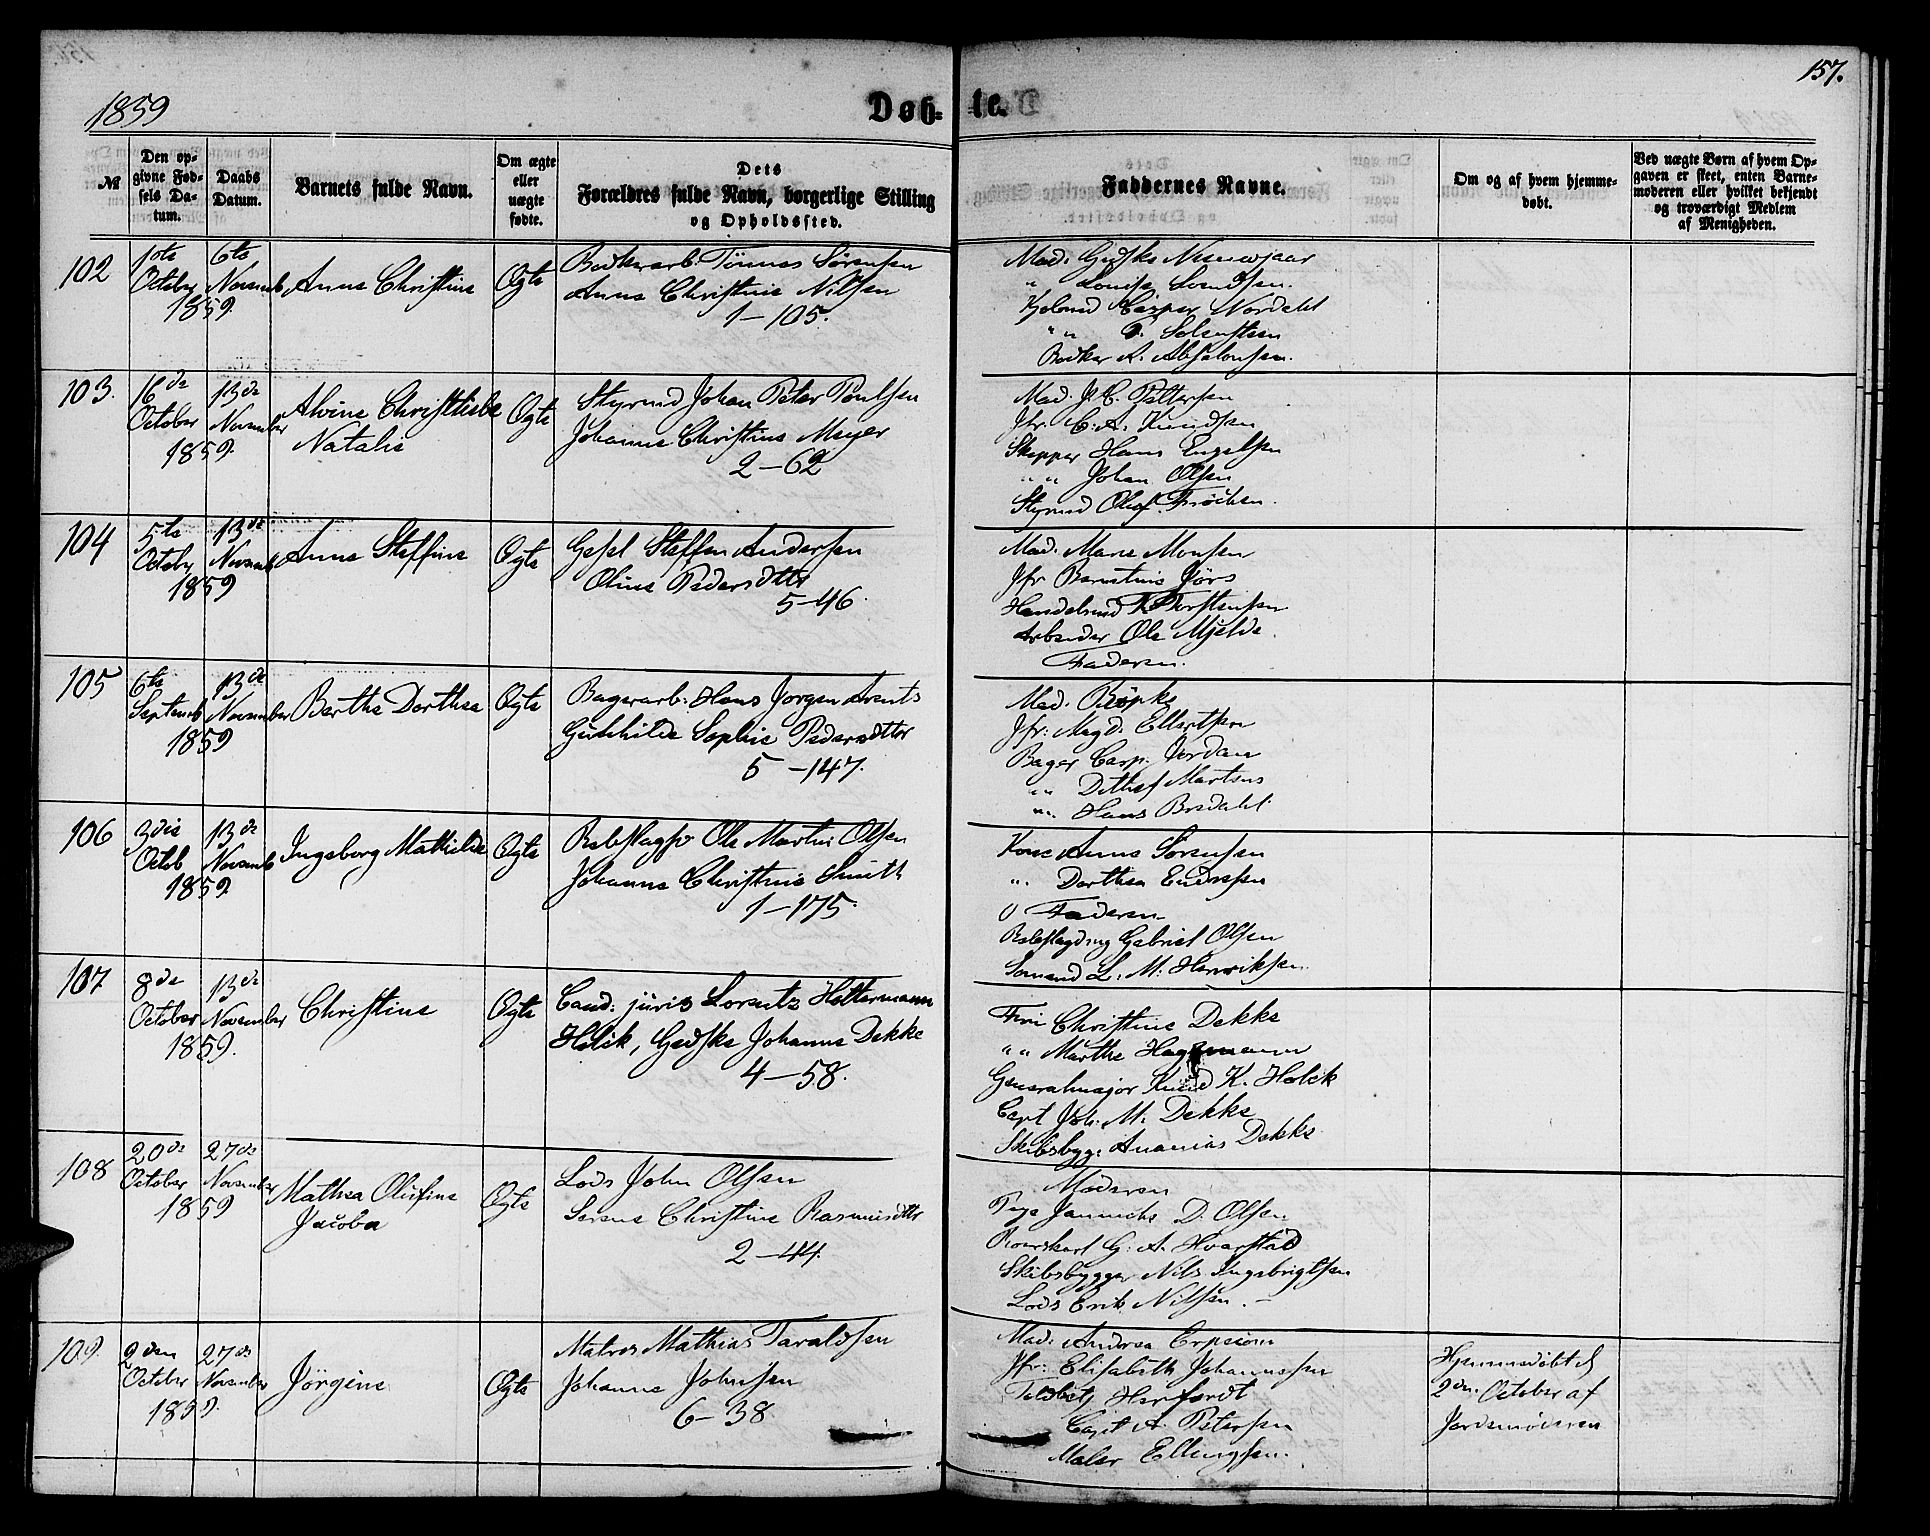 157.
1859
Døb- te.
№
Den op-
givne Fød-
sels Da-
tum.
Daabs
Datum.
Barnets fulde Navn.
Om ægte
eller
uægte
fødte.
Dets
Forældres fulde Navn, borgerlige Stilling
og Opholdssted.
Faddernes Navne.
Om og af hvem hjemme-
døbt.
Ved uægte Børn af hvem Op-
gaven er skeet, enten Barne-
moderen eller hvilket bekjendt
og troværdigt Medlem
af Menigheden.
102
1ste October 1859
6te Novemb
Anne Christine
Ægte
Bødkerarb. Tønnes Sørensen
Anne Christine Nilsen
1-105.
Mad. Gedske
" Lovise Svendsen.
Casper Nordahl
" "
Bødker A. Absalonsen.
103.
16de October 1859
13de November
Alvine Christhiebe
Natalie
Ægte
Styrmd Johan Peter Poulsen
Johanne Christine Meyer
2-62
Mad. J. C. Pettersen
Jfr. C. A. Knudsen
Skipper Hans Engelsen
" " Johan Olsen
Styrmd Oluf
104
5te Octobr 1859
13de Novemb
Anne Steffine
Ægte
Gesel Steffen Andersen
Oline Pedersdttr
5-46.
Mad. Marie Monsen
Jfr Berntine Jørs
Handelsmd T. Torstensen
Arbeider Ole Mjelde.
Faderen.
105
6te Septemb 1859
13de November
Berthe Dorthea
Ægte
Bagerarb. Hans Jørgen Arents
Gunhilde Sophie Pedersdttr
5-147.
Mad. Röpke
Jfr: Magd. Ellertsen
Bager Casp. Jordan
" " Dethlef Martens
" " Hans Bredahl.
106
3die Octob 1859
13de Novemb
Ingeborg Mathilde
Ægte
Rebslagsv Ole Martin Olsen
Johanne Christine Smith
1-175.
Kone Anne Sørensen
" Dorthea Endresen
Faderen
Rebslagdrng Gabriel Olsen
Sømand L. M. Henriksen.
107
8de October 1859.
13de November
Christine
Ægte
Cand: juris Lorentz Holtermann
Holck, Gedske Johanne Dekke
4-58.
Fru Christine Dekke
" " Marthe Hagemann
Generalmajor Knud K. Holck
Capt Joh. M. Dekke
Skibsbygr Ananias Dekke
108
20de October 1859
27de November
Mathea Olufine
Jacoba
Ægte
Lods John Olsen
Serene Christine Rasmusdttr
2-44.
Moderen
Pige Jannicke D. Olsen
G. A. Hvarstad
Skibsbygger Nils Ingebrigtsen
Lods Erik Nilsen. -
109.
2den October 1859.
27de November
Jørgine
Ægte
Matros Mathias Taraldsen
Johanne Johnsen
6-38
Mad. Andrea Erpecom
Jfr: Elisabeth Johannessen
Toldbetj Herfordt
Capt A. Petersen
Maler Ellingsen.
Hjemmedøbt d
2den October af
Jordemoderen